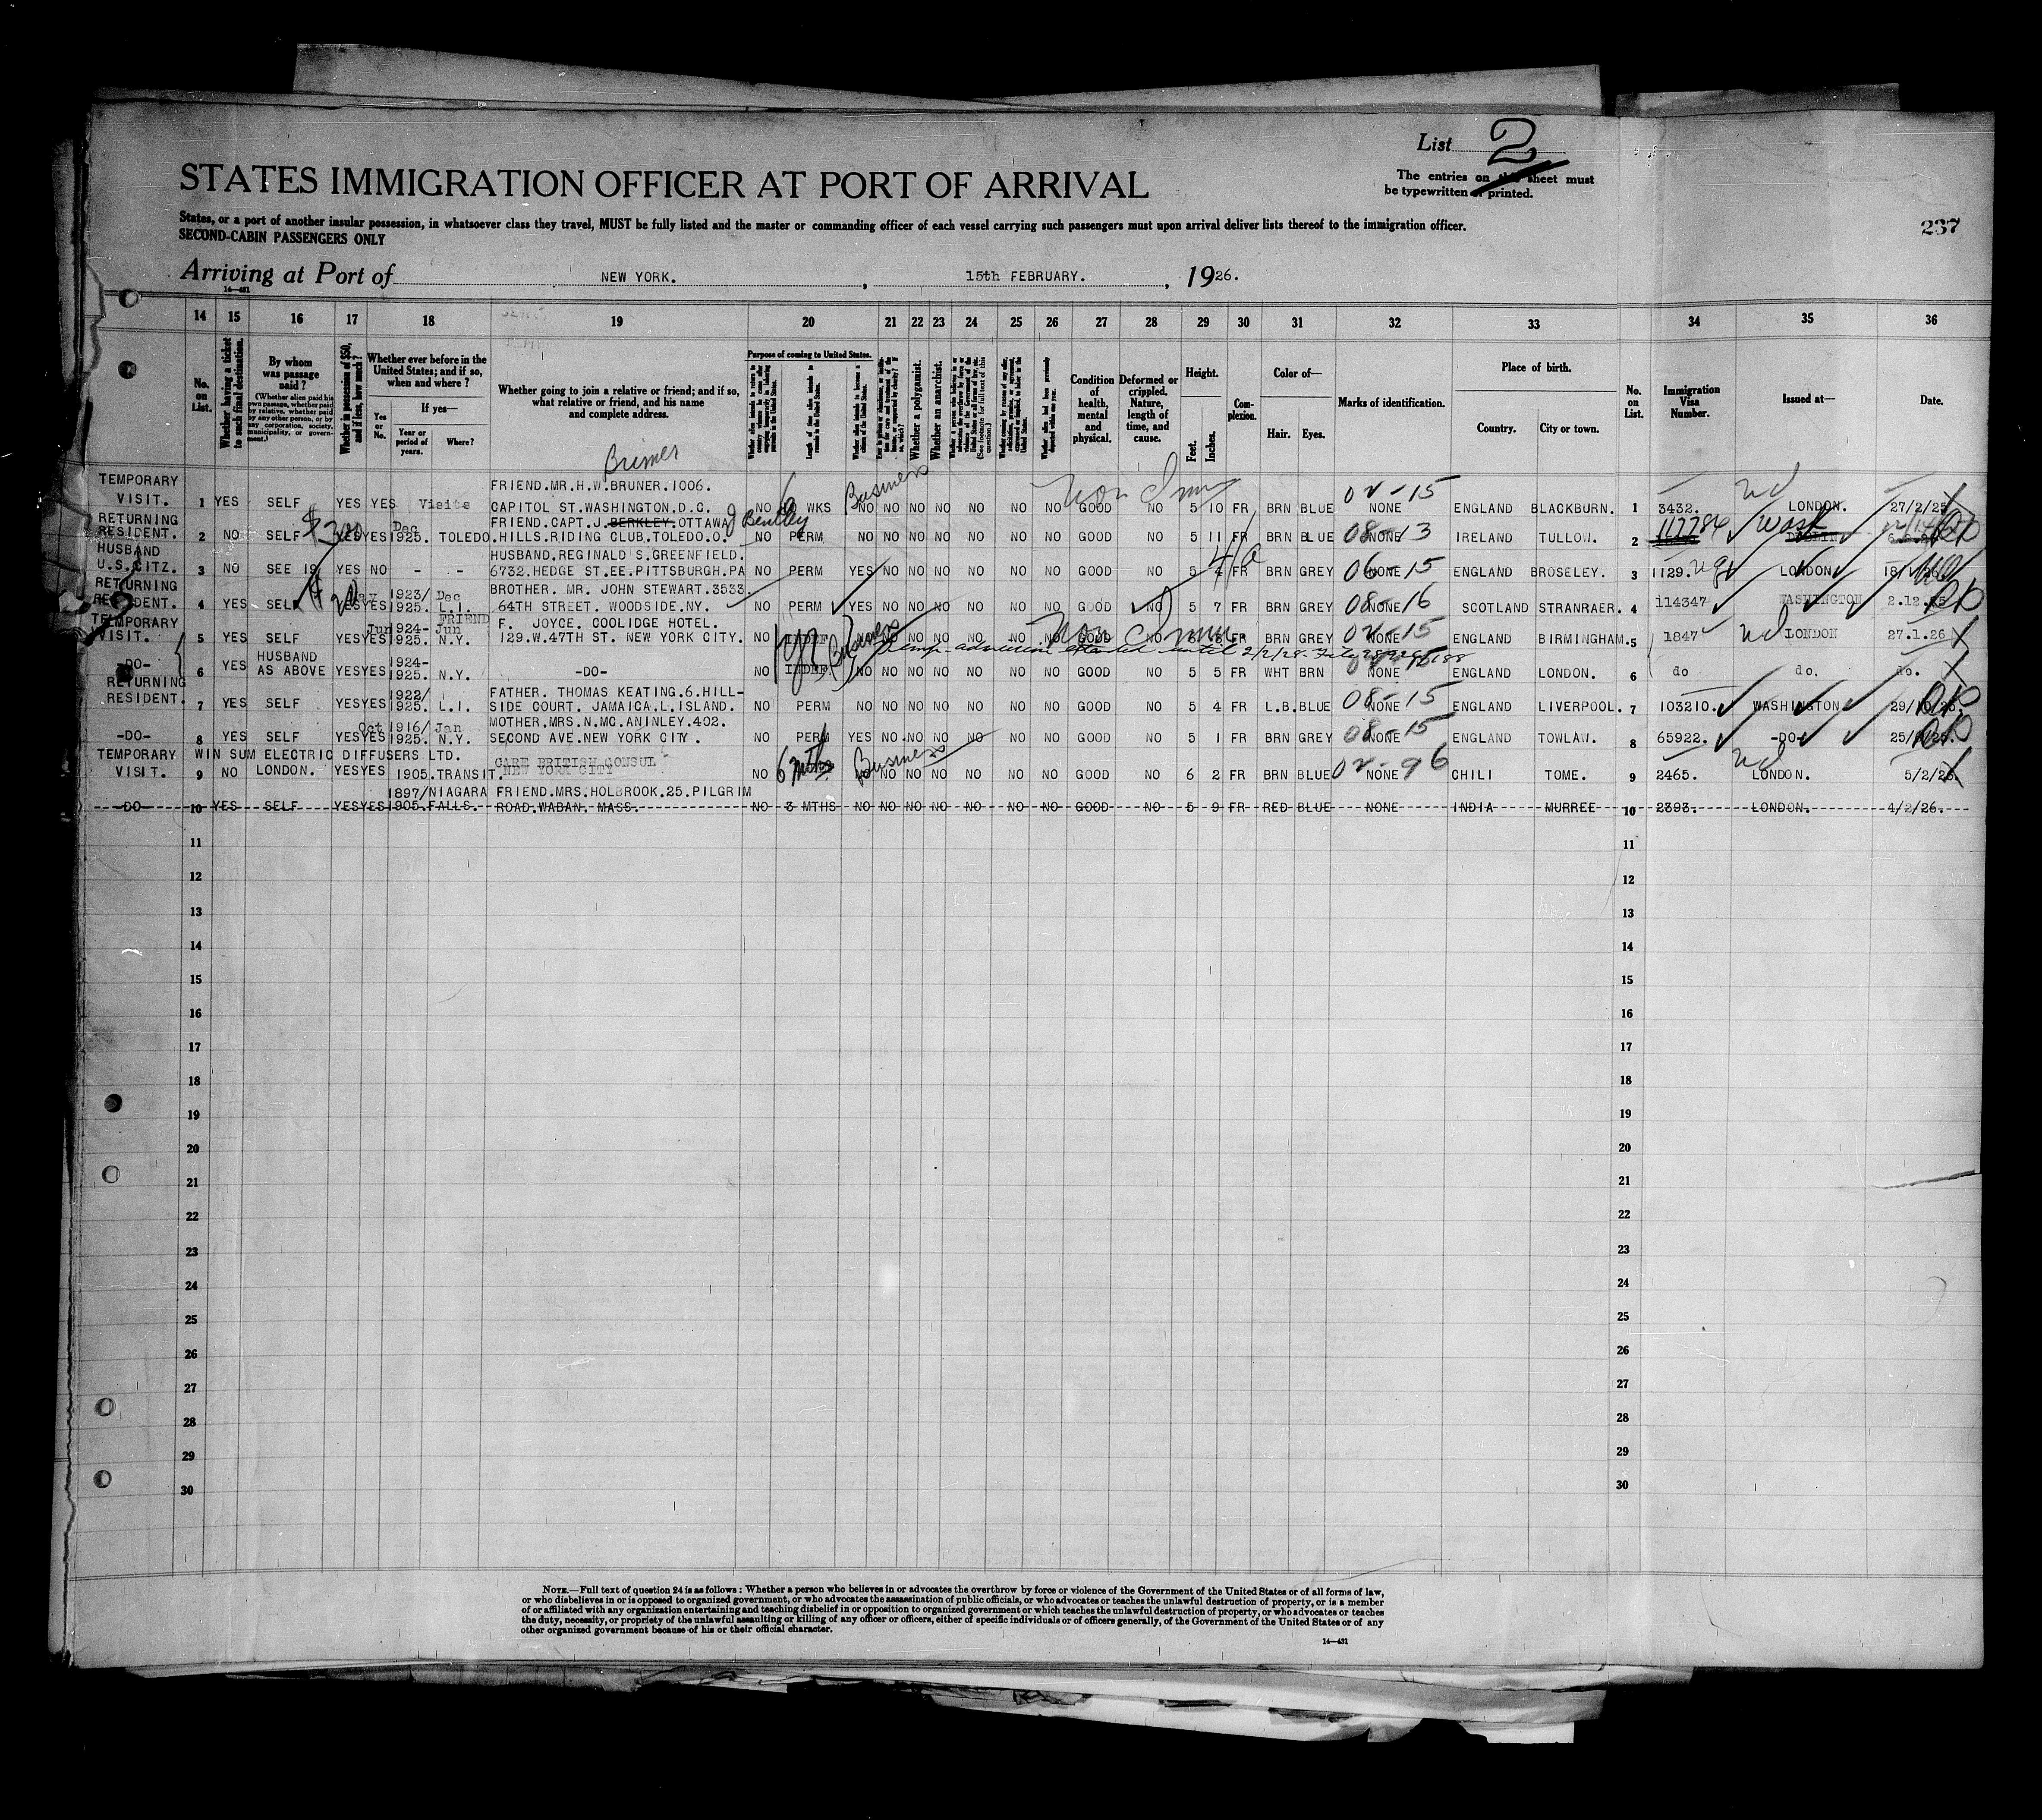 List 2
The entries on this sheet must
be typewritten or printed.
STATES IMMIGRATION OFFICER AT PORT OF ARRIVAL
States, or a port of another insular possession, in whatsoever class they travel, MUST be fully listed and the master or commanding officer of each vessel carrying such passengers must upon arrival deliver lists thereof to the immigration officer.
SECOND-CABIN PASSENGERS ONLY
237
Arriving at Port of NEW YORK. , 15th FEBRUARY. , 1926.
14—431
14 15 16 17 18 19 20 21 22 23 24 25 26 27 28 29 30 31 32 33 34 35 36
No. on List.
Whether having a ticket to such final destination.
By whom was passage paid?
(Whether alien paid his own passage, whether paid by relative, whether paid by any other person, or by any corporation, society, municipality, or government.)
Whether in possession of $50, and if less, how much?
Whether ever before in the United States; and if so, when and where?
Yes or No.
If yes—
Year or period of years.
Where?
Whether going to join a relative or friend; and if so, what relative or friend, and his name and complete address.
Purpose of coming to United States.
Whether a polygamist.
Whether an anarchist.
Condition of health, mental and physical.
Deformed or crippled. Nature, length of time, and cause.
Height.
Feet.
Inches.
Complexion.
Color of—
Hair.
Eyes.
Marks of identification.
Place of birth.
Country.
City or town.
No. on List.
Immigration Visa Number.
Issued at—
Date.
TEMPORARY FRIEND.MR.H.W.BRUNER.1006.
VISIT. 1 YES SELF YES YES Visits CAPITOL ST.WASHINGTON.D.C. NO 6 WKS Business NO NO NO NO NO NO NO Non Imm GOOD NO 5 10 FR BRN BLUE 02-15 NONE ENGLAND BLACKBURN. 1 3432. LONDON. 27/2/25
RETURNING Dec FRIEND.CAPT.J.BERKLEY.OTTAWA J Bentley
RESIDENT. 2 NO SELF $300 YES YES 1925. TOLEDO.HILLS.RIDING CLUB.TOLEDO.O. NO PERM NO NO NO NO NO NO NO GOOD NO 5 11 FR BRN BLUE 08-13 NONE IRELAND TULLOW. 2 117784 Wash DUBLIN
HUSBAND HUSBAND.REGINALD S.GREENFIELD.
U.S.CITZ. 3 NO SEE 19 YES NO - - 6732.HEDGE ST.EE.PITTSBURGH.PA NO PERM YES NO NO NO NO NO NO GOOD NO 5 4 FR BRN GREY 06-15 NONE ENGLAND BROSELEY. 3 1129. LONDON
RETURNING 1923/ Dec BROTHER. MR. JOHN STEWART.3533.
RESIDENT. 4 YES SELF YES YES 1925. L.I. 64TH STREET. WOODSIDE.NY. NO PERM YES NO NO NO NO NO NO GOOD NO 5 7 FR BRN GREY 08-16 NONE SCOTLAND STRANRAER. 4 114347 WASHINGTON 2.12.25
TEMPORARY Jun 1924- Jun FRIEND F. JOYCE. COOLIDGE HOTEL.
VISIT. 5 YES SELF YES YES 1925. N.Y. 129.W.47TH ST. NEW YORK CITY. NO INDEF 1 yr Business NO NO NO NO NO NO Non Imm GOOD NO 5 8 FR BRN GREY 02-15 NONE ENGLAND BIRMINGHAM. 5 1847 LONDON 27.1.26
-DO- HUSBAND 1924-
6 YES AS ABOVE YES YES 1925. N.Y. -DO- NO INDEF. NO NO NO NO NO NO NO GOOD NO 5 5 FR WHT BRN NONE ENGLAND LONDON. 6 do do. do.
RETURNING 1922/ FATHER. THOMAS KEATING.6.HILL-
RESIDENT. 7 YES SELF YES YES 1925. L.I. SIDE COURT. JAMAICA.L.ISLAND. NO PERM NO NO NO NO NO NO NO GOOD NO 5 4 FR L.B. BLUE 08-15 NONE ENGLAND LIVERPOOL. 7 103210. WASHINGTON
Oct 1916/ Jan MOTHER.MRS.N.MC.ANINLEY.402.
-DO- 8 YES SELF YES YES 1925. N.Y. SECOND AVE.NEW YORK CITY. NO PERM YES NO NO NO NO NO NO GOOD NO 5 1 FR BRN GREY 08-15 NONE ENGLAND TOWLAW. 8 65922. -DO-
TEMPORARY WIN SUM ELECTRIC DIFFUSERS LTD. CARE BRITISH CONSUL
VISIT. 9 NO LONDON. YES YES 1905. TRANSIT. NEW YORK CITY NO 6 mths Business NO NO NO NO NO NO NO GOOD NO 6 2 FR BRN BLUE 02-96 NONE CHILI TOME. 9 2465. LONDON. 5/2/26
1897/ NIAGARA FRIEND.MRS.HOLBROOK.25.PILGRIM
-DO- 10 YES SELF YES YES 1905. FALLS. ROAD.WABAN. MASS. NO 3 MTHS NO NO NO NO NO NO NO GOOD NO 5 9 FR RED BLUE NONE INDIA MURREE 10 2393. LONDON. 4/2/26.
11 11
12 12
13 13
14 14
15 15
16 16
17 17
18 18
19 19
20 20
21 21
22 22
23 23
24 24
25 25
26 26
27 27
28 28
29 29
30 30
NOTE.—Full text of question 24 is as follows: Whether a person who believes in or advocates the overthrow by force or violence of the Government of the United States or of all forms of law,
or who disbelieves in or is opposed to organized government, or who advocates the assassination of public officials, or who advocates or teaches the unlawful destruction of property, or is a member
of or affiliated with any organization entertaining and teaching disbelief in or opposition to organized government or which teaches the unlawful destruction of property, or who advocates or teaches
the duty, necessity, or propriety of the unlawful assaulting or killing of any officer or officers, either of specific individuals or of officers generally, of the Government of the United States or of any
other organized government because of his or their official character.
14—431